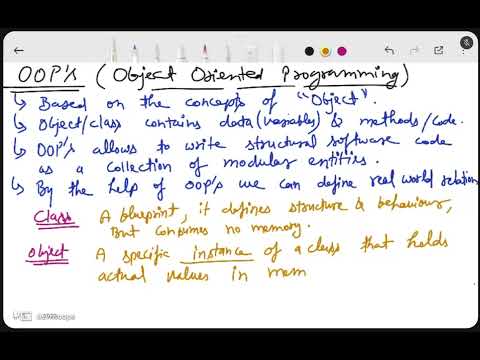 OOP's ( Object Oriented Programming)
↳ Based on the concepts of "Object".
↳ Object/class contains data(variable) & methods/code.
↳ OOP's allows to write structural software code
as a collection of modular entities.
↳ By the help of OOP's we can define real world relation
Class A blueprint, it defines structure & behaviour,
But consumes no memory.
Object A specific instance of a class that holds
actual values in mem